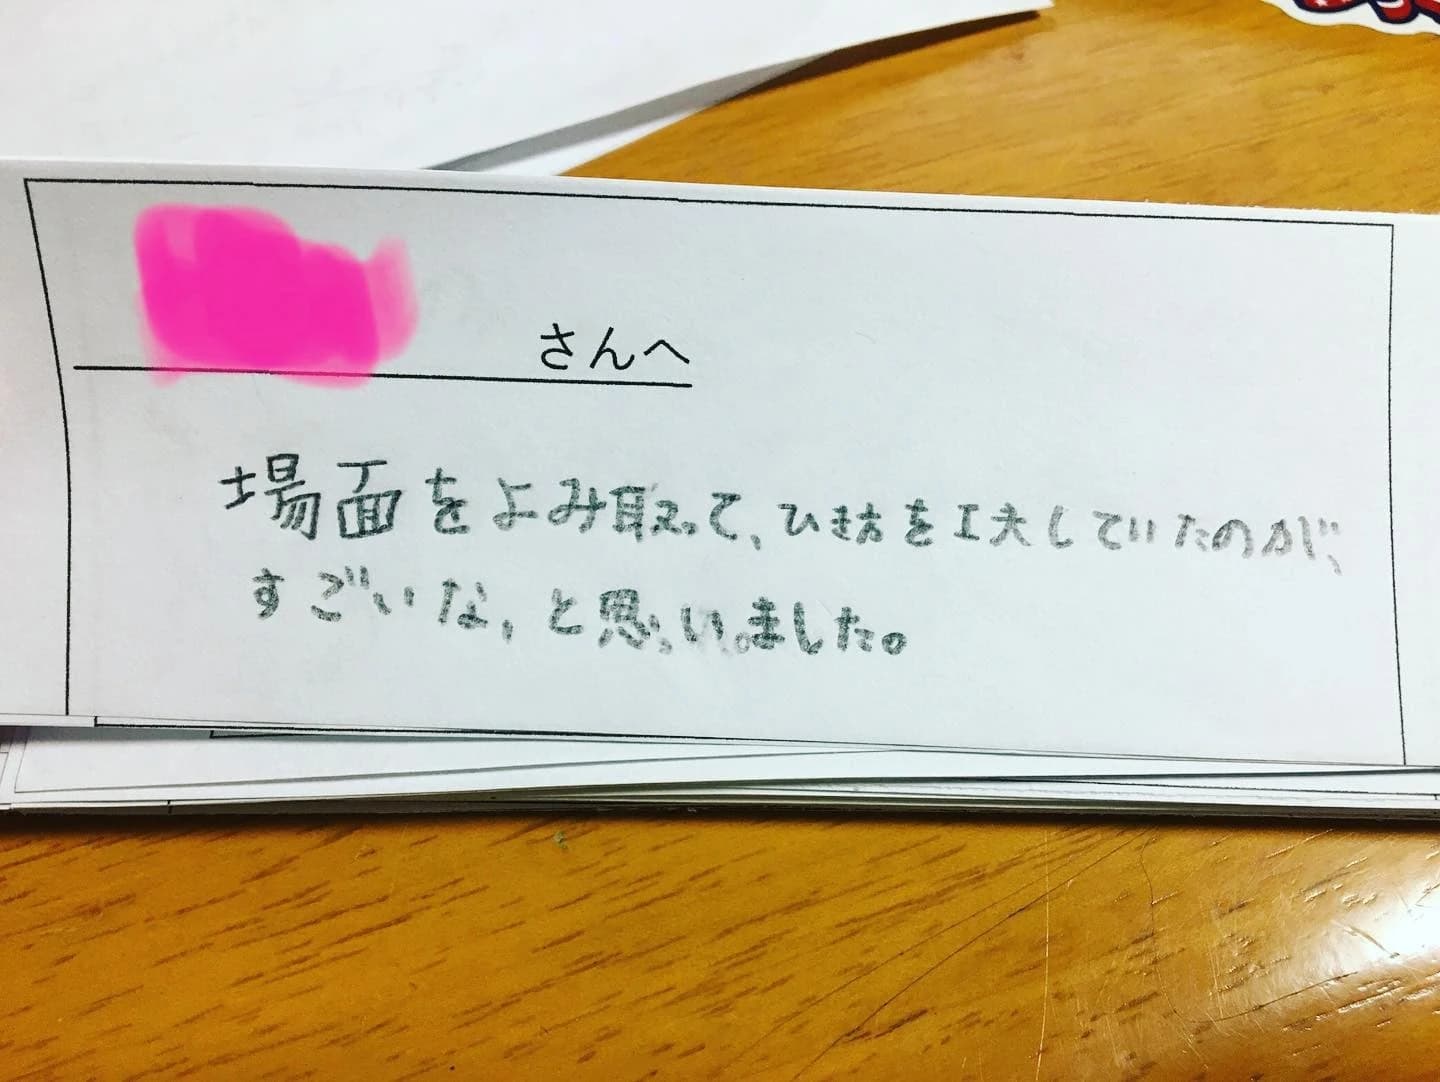 さんへ
場面をよみ取って、ひき方を工夫していたのが、
すごいな、と思いました。